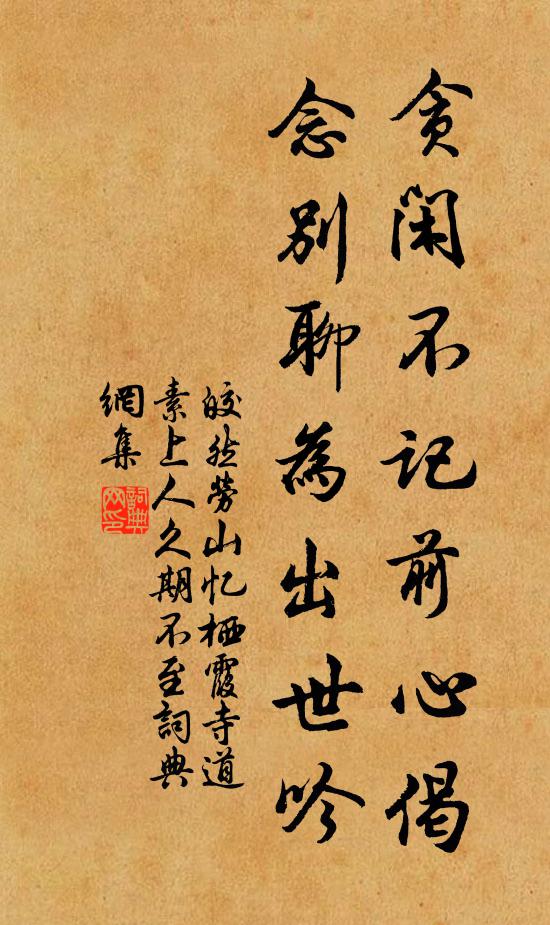 贪闲不记前心偈
念别聊为出世吟
皎然劳山忆栖霞寺道
素上人久期不至詞典
網集
詞典
网印